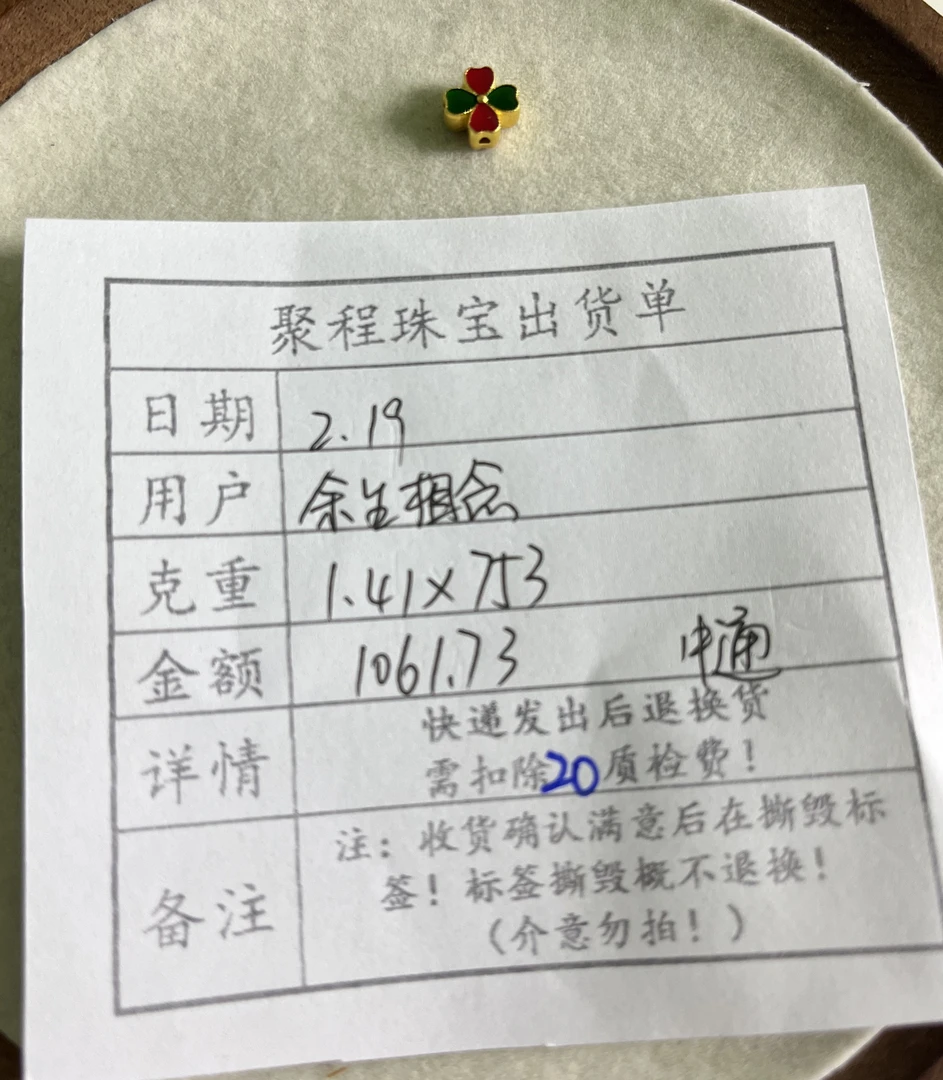 聚程珠宝出货单
日期 2.19
用户 余生相念
克重 1.41×753
金额 1061.73 中通
详情 快递发出后退换货
需扣除20质检费！
备注 注：收货确认满意后在撕毁标
签！标签撕毁概不退换！
（介意勿拍！）